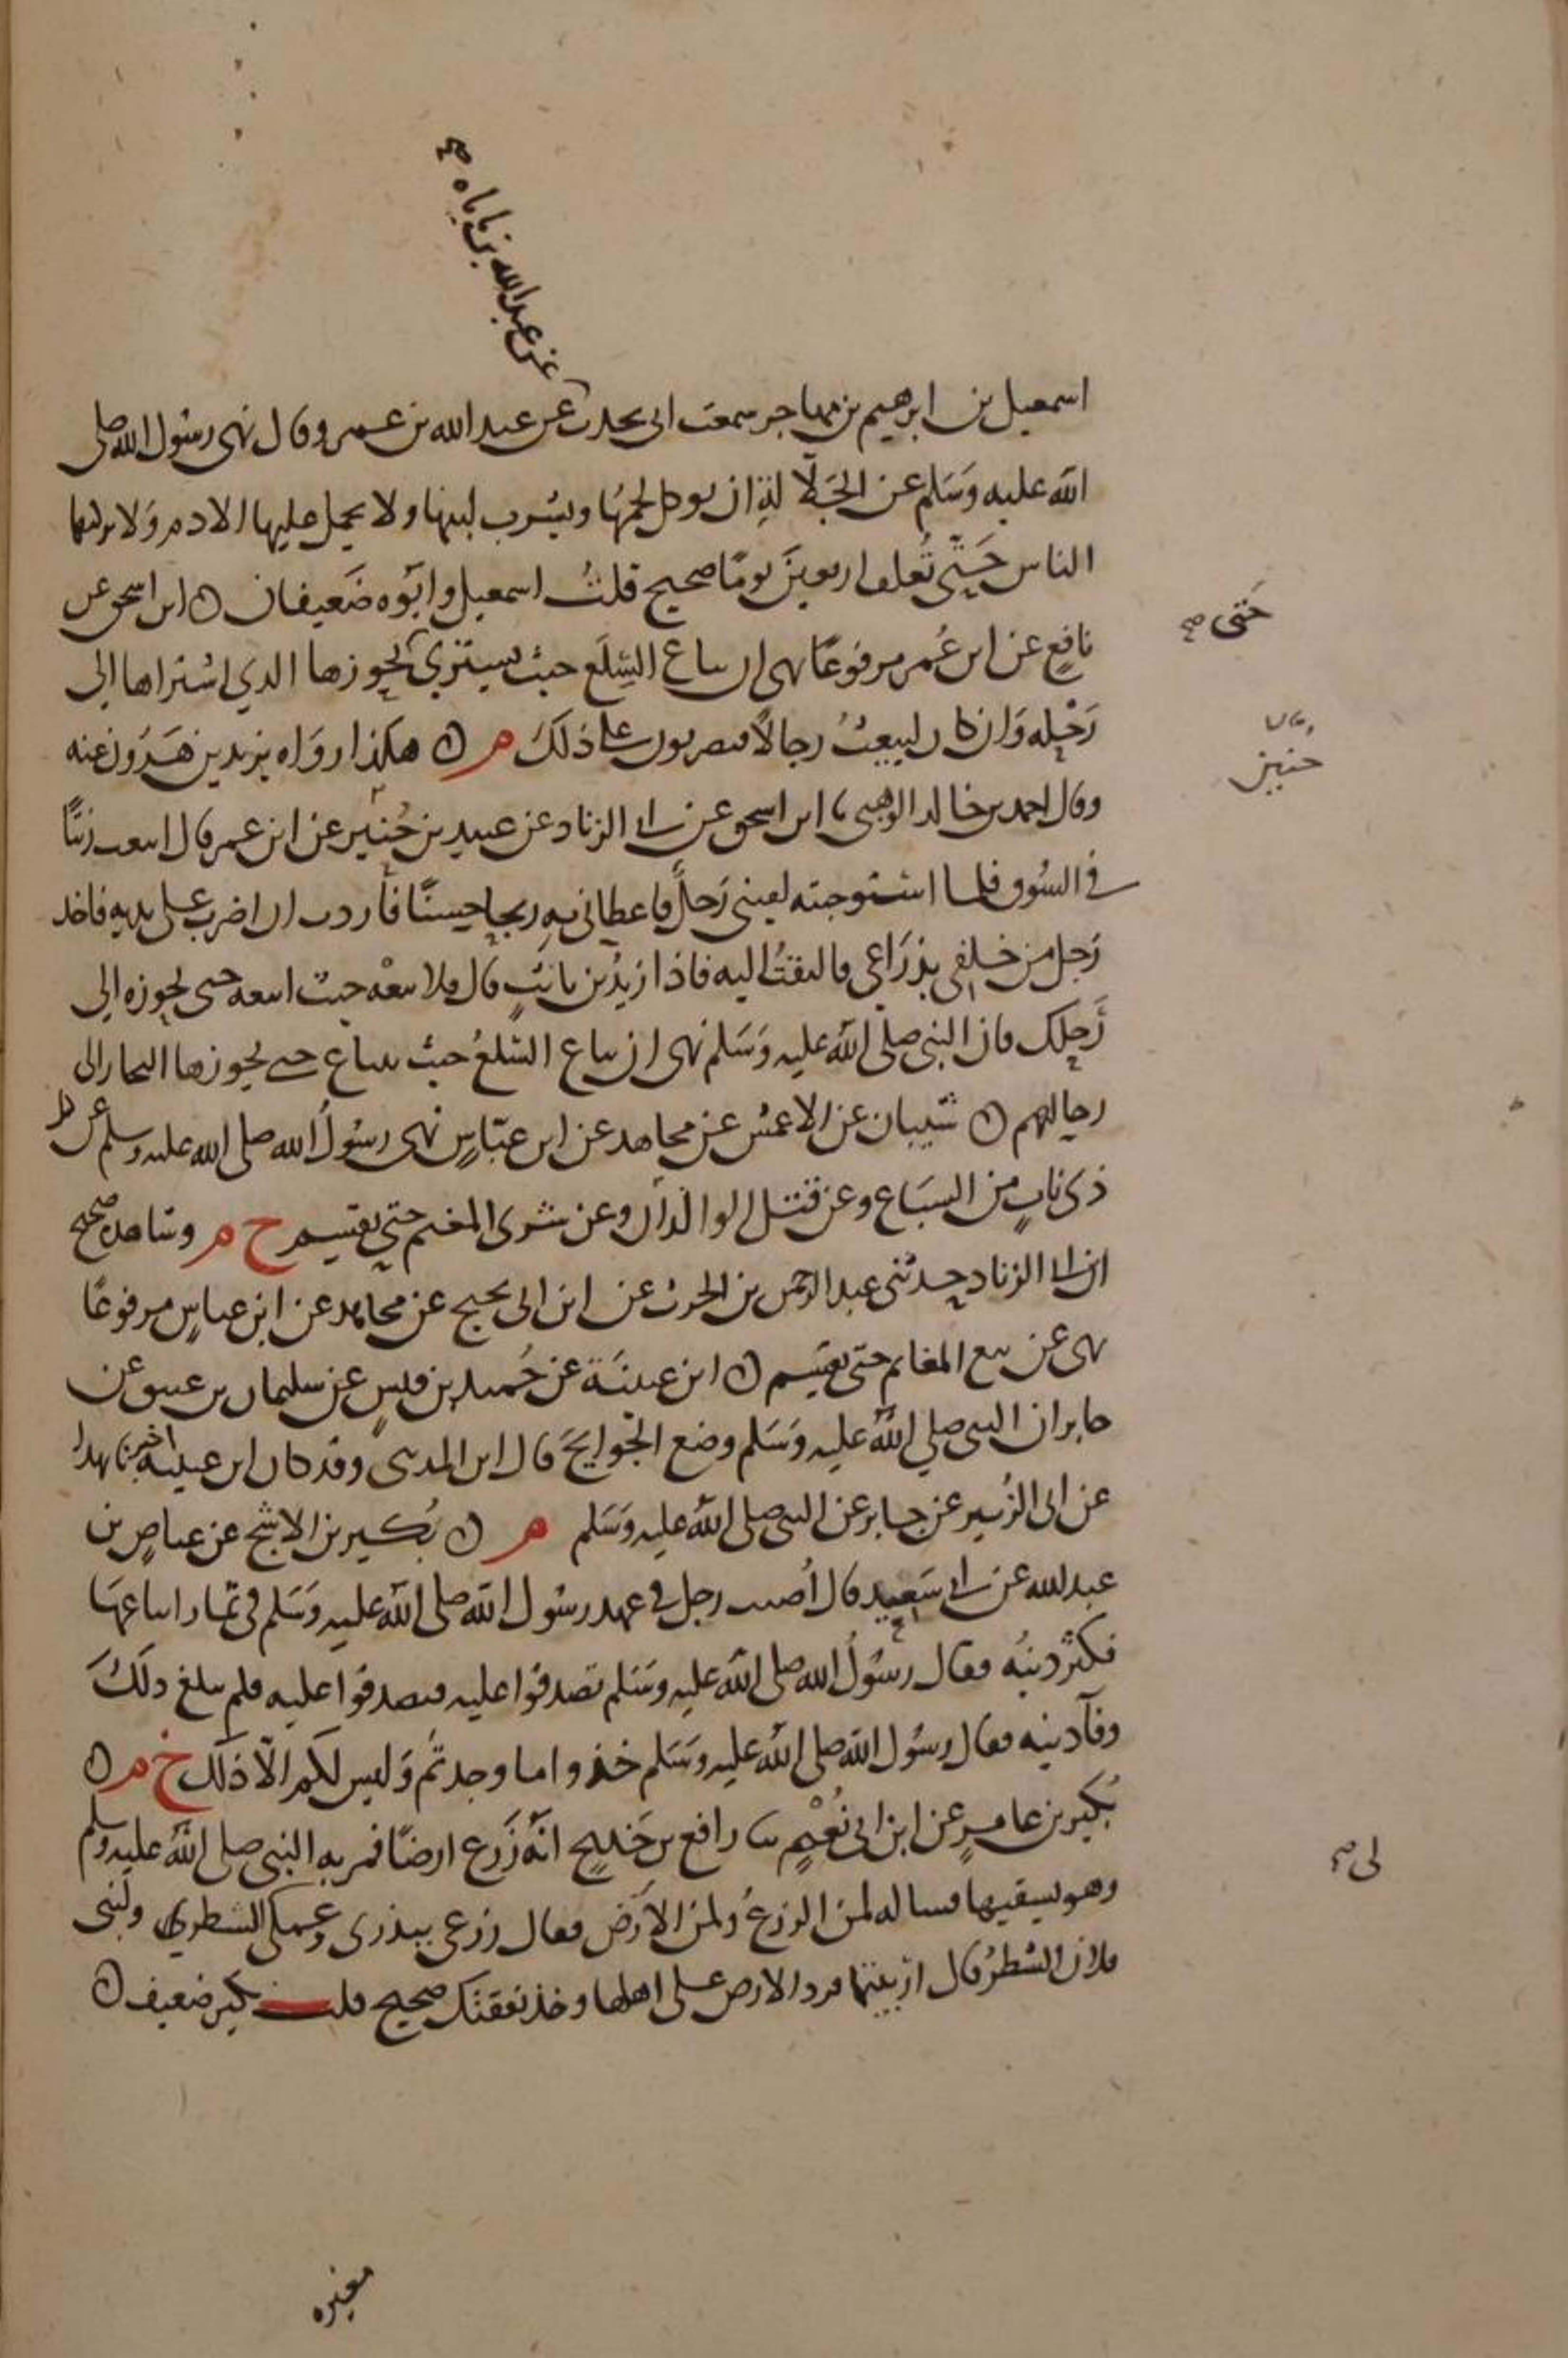 عن عبد الله بن باباه صح
اسمعيل بن ابرهيم بن مهاجر سمعت ابي يحدث عن عبد الله بن عمرو قال نهى رسول الله صلى
الله عليه وسلم عن الجلالة ان يوكل لحمها ويشرب لبنها ولا يحمل عليها الادم ولا يركبها
الناس حتى تعلف اربعين يوما صحيح قلت اسمعيل وابوه ضعيفان ابن اسحق عن
نافع عن ابن عمر مرفوعا نهى ان تباع السلع حيث تشترى يحوزها الذي اشتراها الى
حتى صح
رحله وان كان ليبعث رجالا فيضربون على ذلك م هكذا رواه يزيد بن هرون عنه
يقال
حنين
وقال احمد بن خالد الوهبي نا ابن اسحق عن ابي الزناد عن عبيد بن حنين عن ابن عمر قال ابتعت زيتا
في السوق فلما استوجبته لقيني رجل فاعطاني به ربحا حسنا فأردت ان اضرب على يديه فاخذ
رجل من خلفي بذراعي فالتفت اليه فاذا زيد بن ثابت قال فلا تبعه حيث ابتعته حتى تحوزه الى
رحلك فان النبي صلى الله عليه وسلم نهى ان تباع السلع حيث تبتاع حتى يحوزها التجار الى
رحالهم شيبان عن الاعمش عن مجاهد عن ابن عباس نهى رسول الله صلى الله عليه وسلم عن كل
ذي ناب من السباع وعن قتل الولدان وعن شرى المغنم حتى يقسم خ م وشاهده صحيح
ابن ابي الزناد حدثني عبد الرحمن بن الحرث عن ابن ابي نجيح عن مجاهد عن ابن عباس مرفوعا
نهى عن بيع المغانم حتى تقسم ابن عيينة عن حميد بن قيس عن سليمان بن عتيق عن
جابر ان النبي صلى الله عليه وسلم وضع الجوايح قال ابن المديني وقد كان ابن عيينة اخبرنا بهذا
عن ابي الزبير عن جابر عن النبي صلى الله عليه وسلم م بكير بن الاشج عن عياض بن
عبد الله عن ابي سعيد قال اصيب رجل في عهد رسول الله صلى الله عليه وسلم في ثمار ابتاعها
فكثر دينه فقال رسول الله صلى الله عليه وسلم تصدقوا عليه فتصدقوا عليه فلم يبلغ ذلك
وفآ دينه فقال رسول الله صلى الله عليه وسلم خذوا ما وجدتم وليس لكم الا ذلك خ م
بكير بن عامر عن ابن ابي نعيم نا رافع بن خديج انه زرع ارضا فمر به النبي صلى الله عليه وسلم
وهو يسقيها فساله لمن الزرع ولمن الارض فقال زرعي ببذري وعملي الشطر ولبني
لي صح
فلان الشطر قال اربيتما فرد الارض على اهلها وخذ نفقتك صحيح قلت بكير ضعيف
مغيره